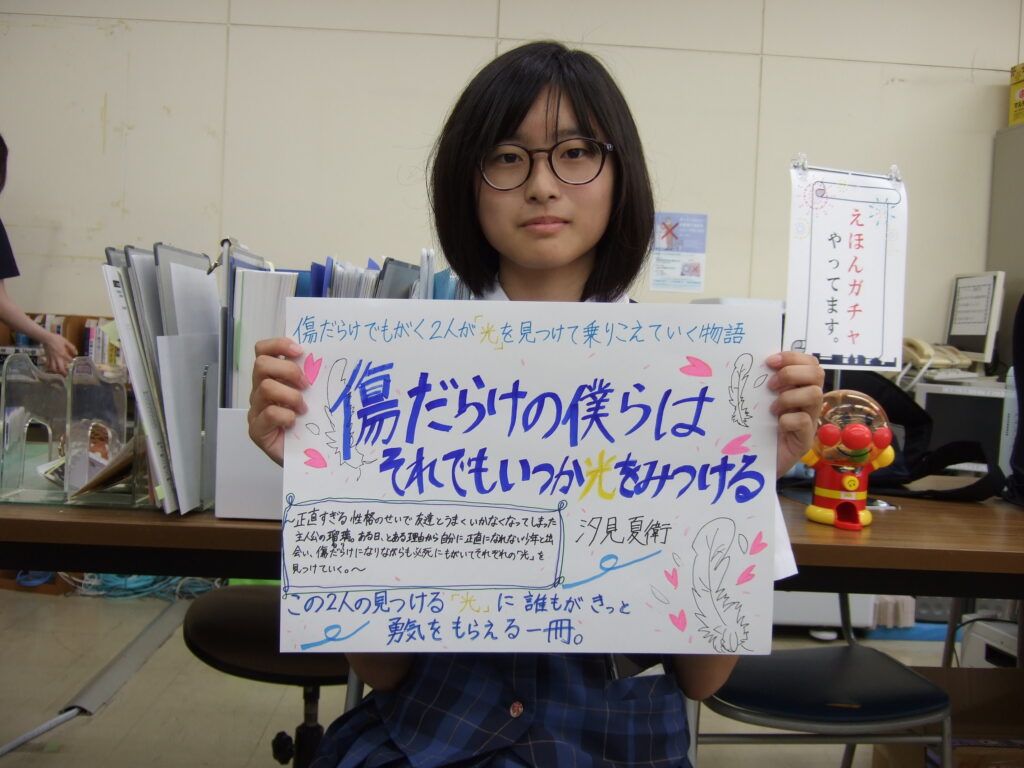 傷だらけでもがく2人が「光」を見つけて乗りこえていく物語
傷だらけの僕らは
それでもいつか光をみつける
汐見夏衛
〜正直すぎる性格のせいで友達とうまくいかなくなってしまった
主人公の瑠璃。ある日、とある理由から自分に正直になれない少年と出
会い、傷だらけになりながらも必死にもがいてそれぞれの「光」を
見つけていく。〜
この2人の見つける「光」に誰もがきっと
勇気をもらえる一冊。
えほんガチャ
やってます。